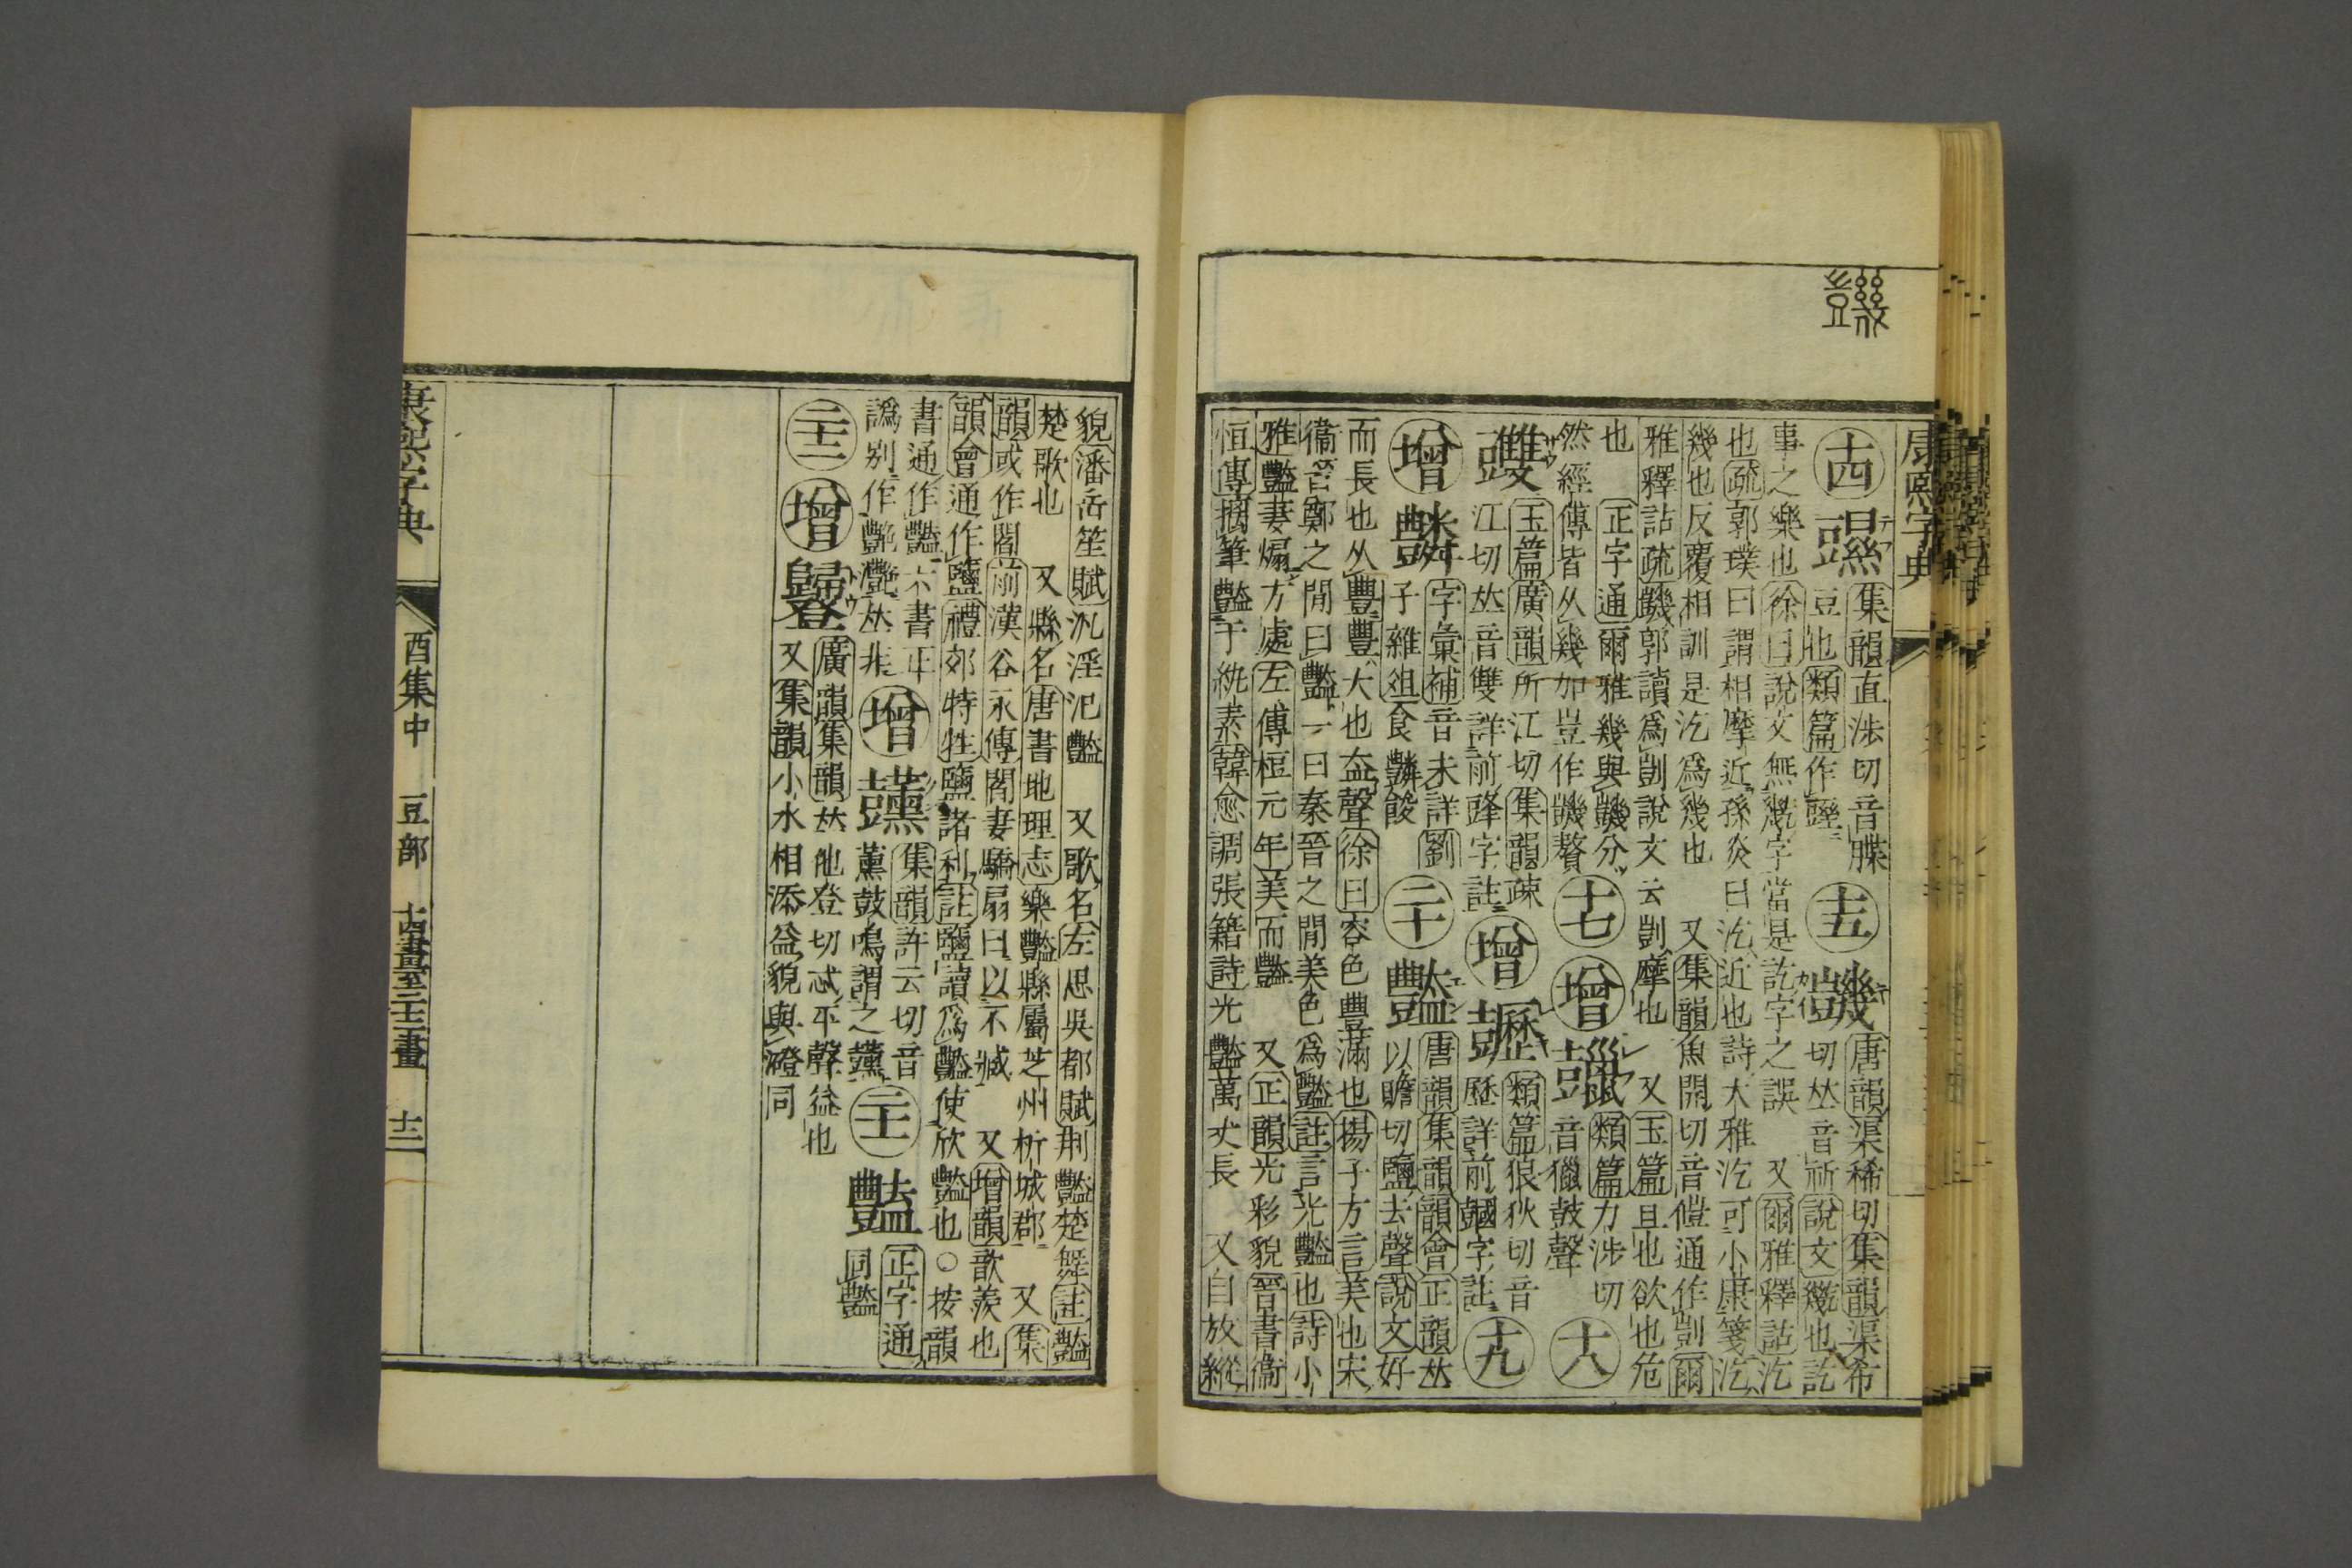 康熙字典
十四
集韻直涉切音牒
豆也類篇作
十五
唐韻渠稀切集韻渠希
切𠀤音祈說文䊠也訖
事之樂也徐曰說文無䊠字當是訖字之誤 又爾雅釋詁汔
也疏郭璞曰謂相摩近孫炎曰汔近也詩大雅汔可小康箋汔
幾也反覆相訓是汔爲幾也 又集韻魚開切音皚通作剴爾
雅釋詁疏䜪郭讀爲剴說文云剴摩也 又玉篇且也欲也危
也 正字通爾雅幾與䜪分
然經傳皆从幾加豈作䜪贅
十七
增
類篇力涉切
音獵鼓聲
十八
䝄
玉篇廣韻所江切集韻疎
江切𠀤音雙詳前字註
增
類篇狼狄切音
歷詳前字註
十九
增
字彙補音未詳劉
子雜俎食餕
二十
豔
唐韻集韻韻會正韻𠀤
以贍切鹽去聲說文好
而長也从豐豐大也盇聲徐曰容色豐滿也揚子方言美也宋
衞晉鄭之閒曰豔一曰秦晉之閒美色爲豔註言光豔也詩小
雅豔妻煽方處左傳桓元年美而豔 又正韻光彩貌晉書衞
恒傳摛筆豔于紈素韓愈調張籍詩光豔萬丈長 又自放縱
貌潘岳笙賦汎淫氾豔 又歌名左思吳都賦荆豔楚舞註豔
楚歌也 又縣名唐書地理志樂豔縣屬芝州析城郡 又集
韻或作閻前漢谷永傳閻妻驕扇曰以不臧 又增韻歆羨也
韻會通作鹽禮郊特牲鹽諸利註鹽讀爲豔使欣豔也○按韻
書通作豔六書正
譌別作艷𠀤非
增
集韻許云切音
薰鼓鳴謂之
二十一
豓
正字通
同豔
二十二
增
廣韻集韻𠀤他登切忒平聲益也
又集韻小水相添益貌與㵧同
康熙字典
酉集中
豆部
十四畫至二十二畫
十二